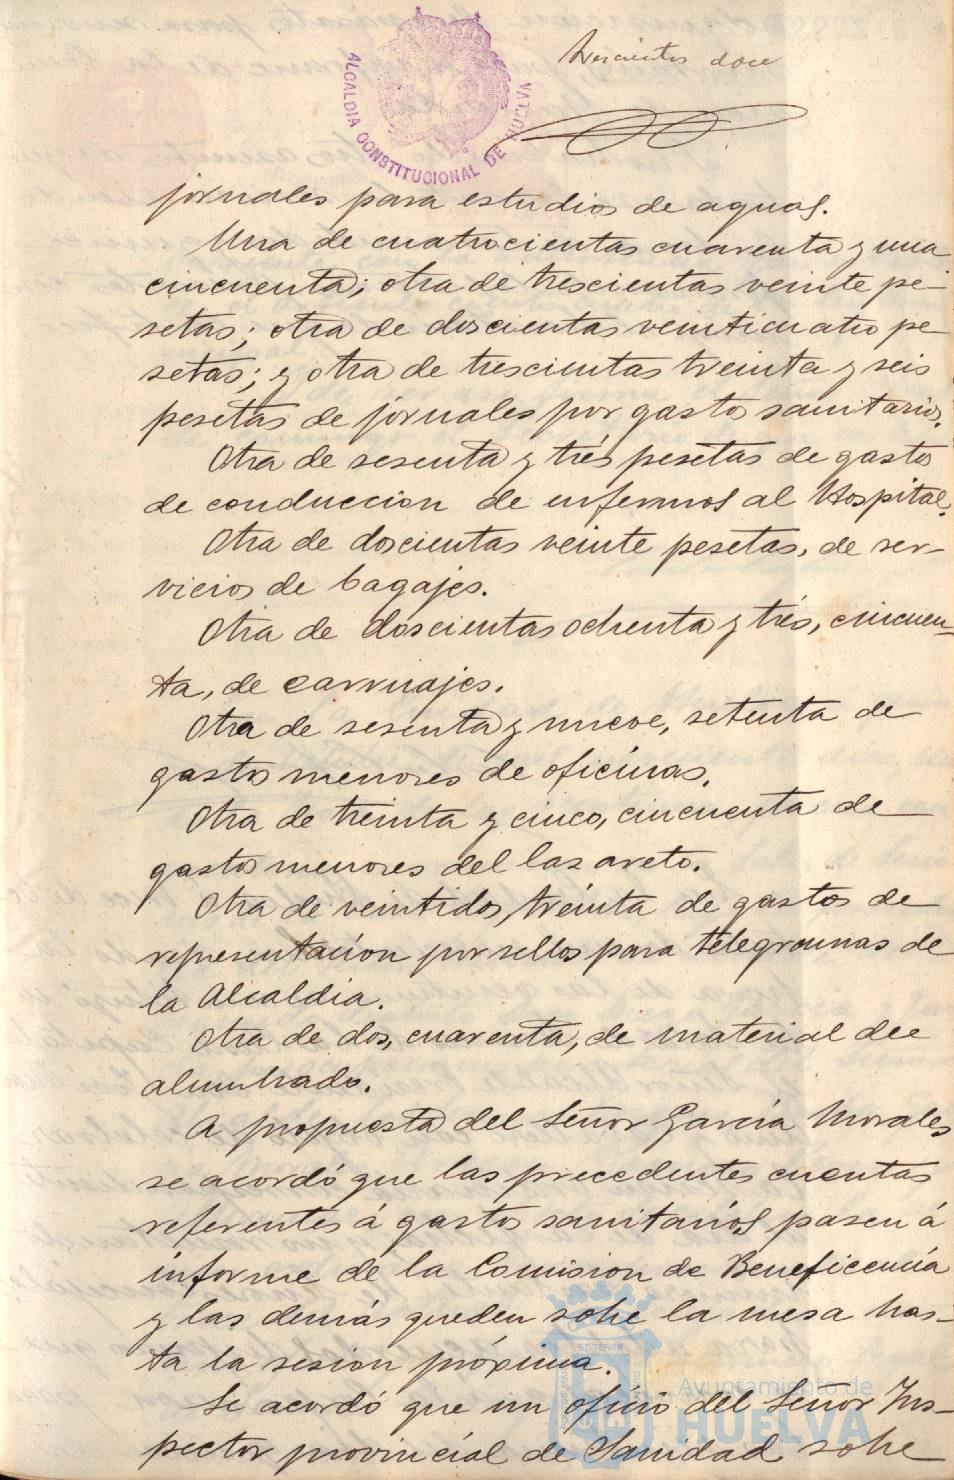 Doscientos doce
ALCALDIA CONSTITUCIONAL DE HUELVA
jornales para estudios de aguas.
Una de cuatrocientas cuarenta y una
cincuenta; otra de trescientas veinte pe-
setas; otra de doscientas veinticuatro pe
setas; y otra de trescientas treinta y seis
pesetas de jornales por gastos sanitarios.
Otra de sesenta y trés pesetas de gastos
de conduccion de enfermos al Hospital.
Otra de doscientas veinte pesetas, de ser-
vicios de bagajes.
Otra de doscientas ochenta y trés, cincuen-
ta, de carruajes.
Otra de sesenta y nueve, setenta de
gastos menores de oficinas.
Otra de treinta y cinco, cincuenta de
gastos menores del lazareto.
Otra de veintidos, treinta de gastos de
representacion por sellos para telegramas de
la Alcaldia.
Otra de dos, cuarenta, de material de
alumbrado.
A propuesta del Señor Garcia Morales
se acordó que las precedentes cuentas
referentes á gastos sanitarios pasen á
informe de la Comision de Beneficencia
y las demás queden sobre la mesa has-
ta la sesion próxima.
Se acordó que un oficio del Señor Ins-
pector provincial de Sanidad sobre
Ayuntamiento de
HUELVA